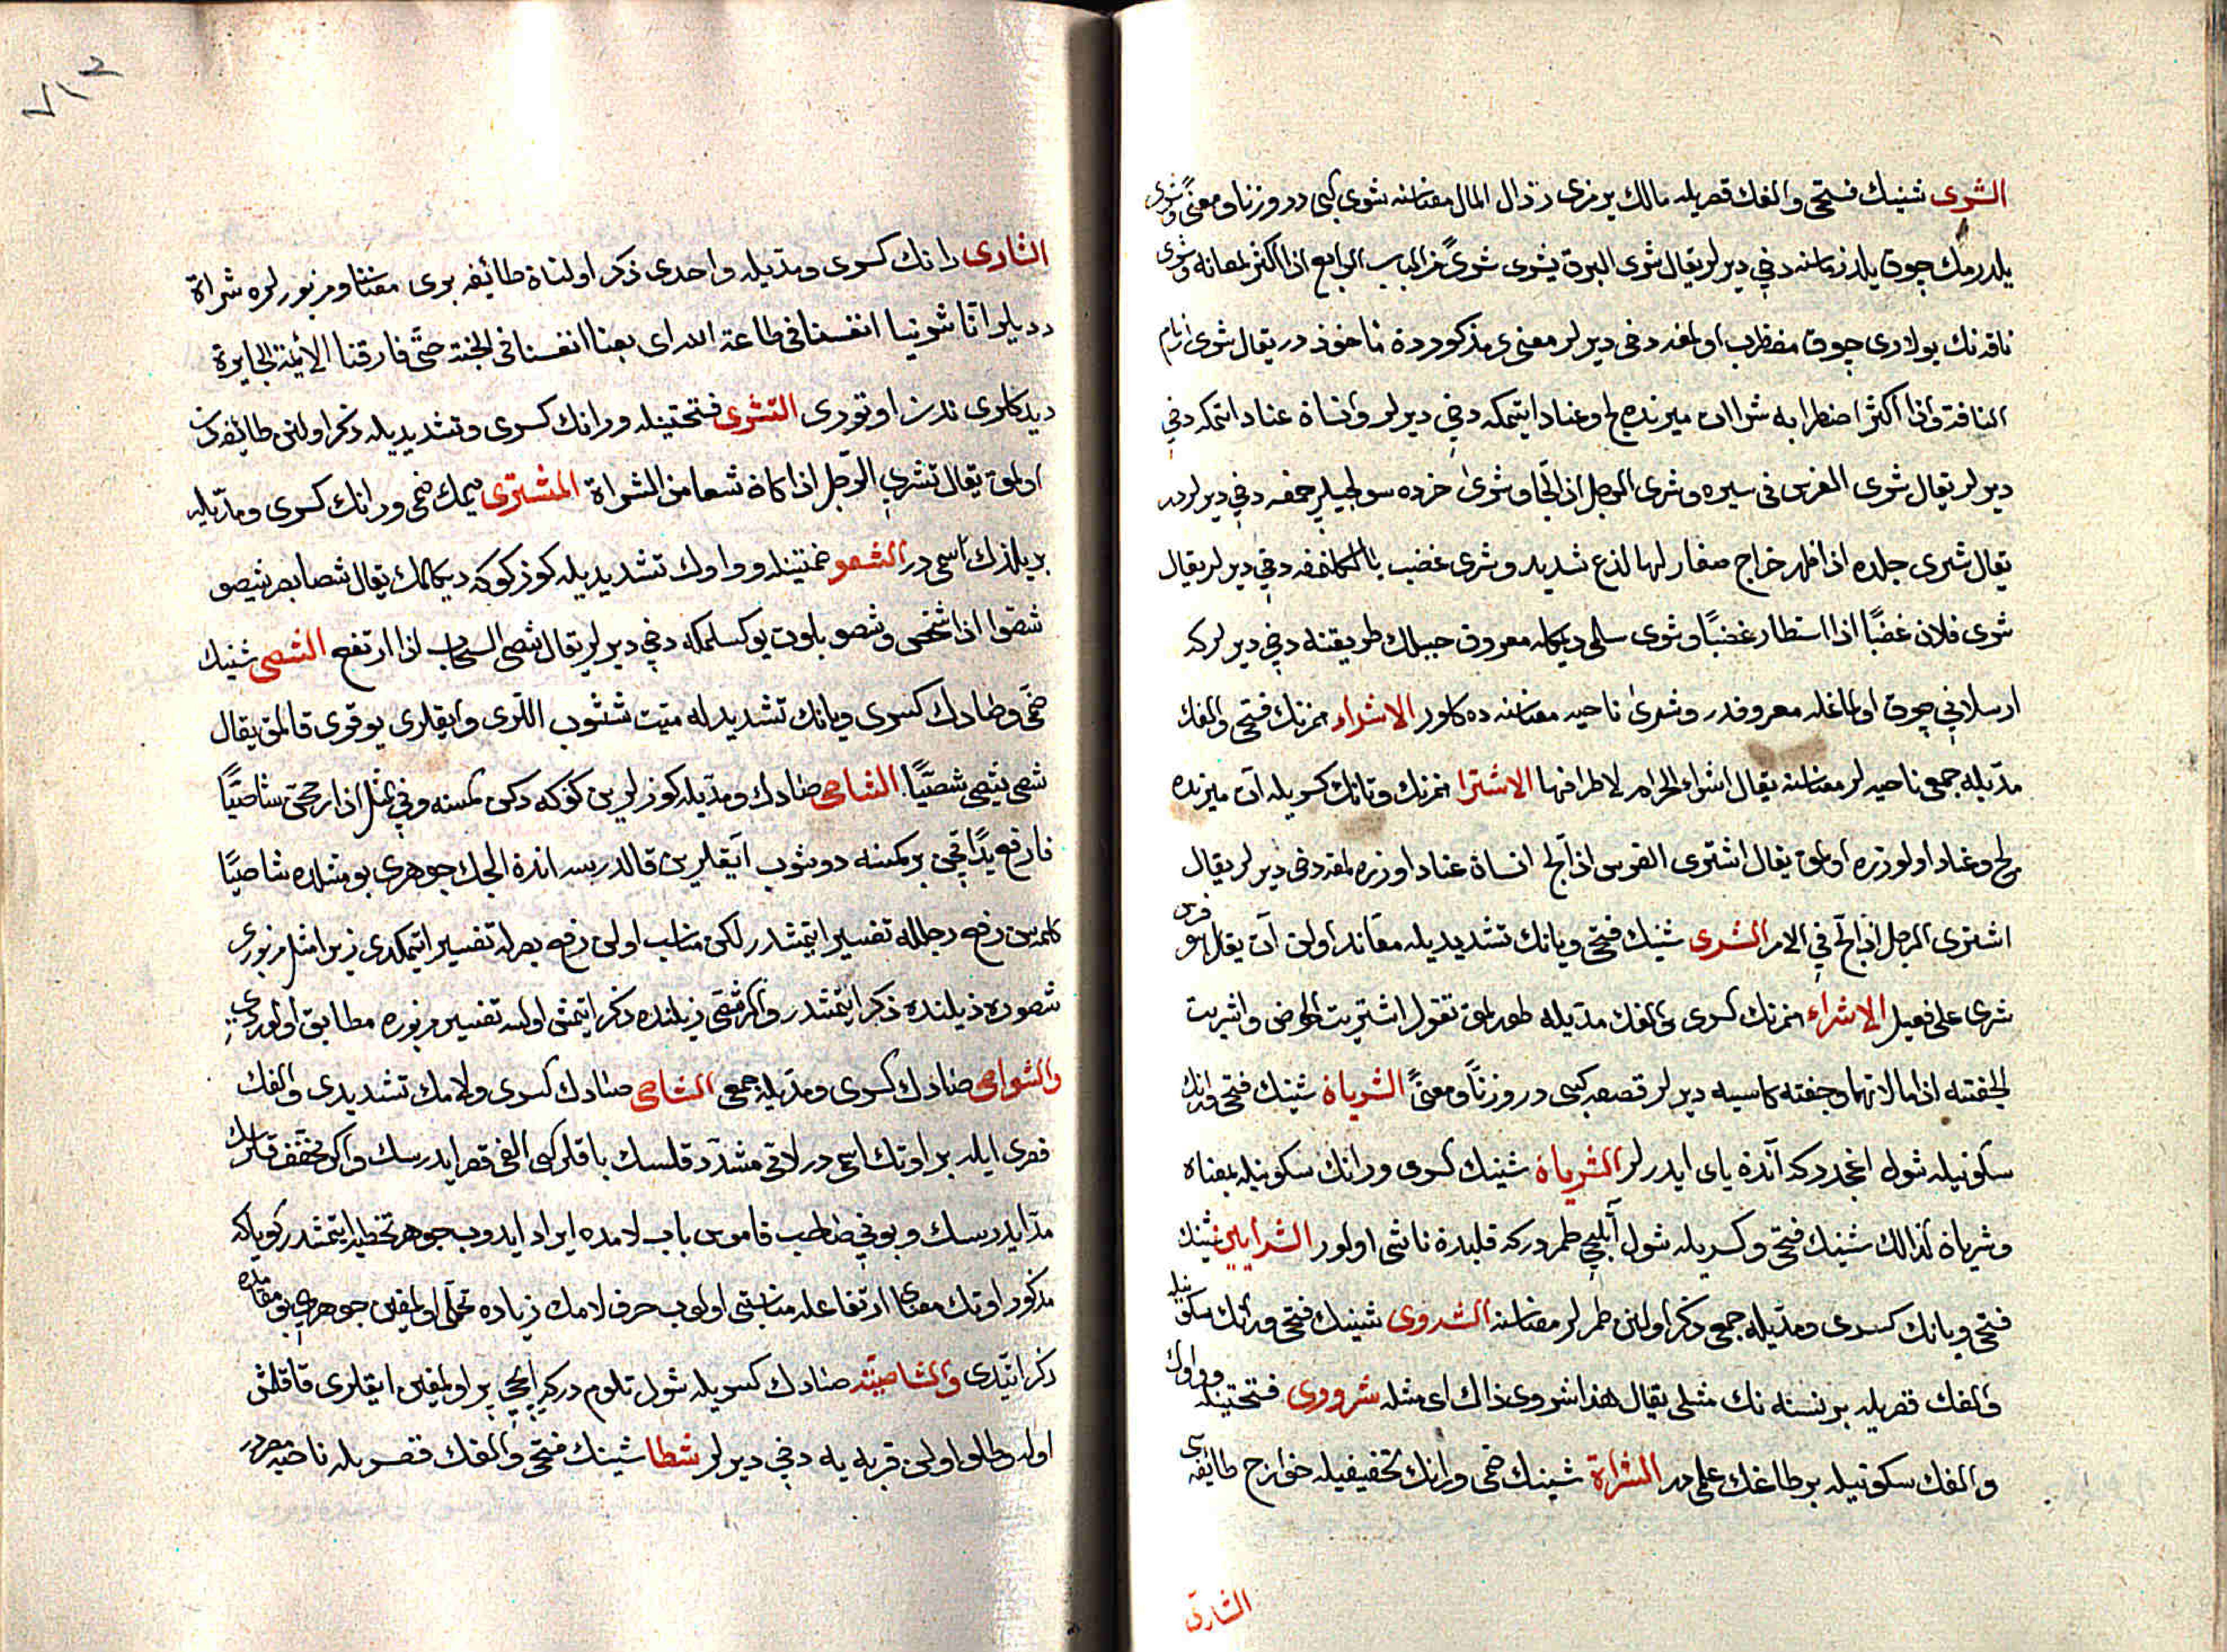 الشرى شينك فتحى والفك قصريله مالك يرمزى رذال المال معناسنه شوى كبى در وزنا ومعنى وشرى
يلدرمك چوق يلدرماسنه دخى ديرلر يقال شرى البرق يشرى شرى من الباب الرابع اذا اكثر لمعانه وشرى
ناقه نك يولارى چوق مضطرب اولمغه دخى ديرلر معنى مذكوردن مأخوذدر يقال شرى زمام
الناقة واذا اكثر اضطرابه شراات ميرنده لج وعناد ايتمكه دخى ديرلر وانسان عناد ايتمكه دخى
ديرلر يقال شرى الفرس فى سيره وشرى الرجل اذا لجا وشرى خرده سولجيلر چقمغه دخى ديرلر
يقال شرى جلده اذا ظهر خراج صغار لها لذع شديد وشرى غضب دخى ديرلر يقال
شرى فلان غضبًا اذا استطار غضبًا وشرى سلمى ديمكله معروف جبلك طريقنه دخى ديرلر كه
ارسلانى چوق اولماغله معروفدر وشرى ناحيه معناسنه ده كلور الاشراء همزنك فتحى والفك
مديله جمعى ناحيه لر معناسنه يقال اشراء الحرام لاطرافها الاشترا همزنك وتانك كسريله آت ميرنده
لج وعناد اوزره اولمق يقال اشترى الفرس اذا لج انسان عناد اوزره اولمغه دخى ديرلر يقال
اشترى الرجل اذا لج فى الامر الشرى شينك فتحى ويانك تشديديله معاند اولن آت يقال هو فرس
شرى على فعيل الاشراء همزنك كسرى والفك مديله طورلمق تقول اشتريت الحوض واشريت
الجفنة اذا مالاتهما وجفنه كاسيه ديرلر قصعه كبى در وزنًا ومعنىً الشريان شينك فتحى ورانك
سكونيله شول اغجدر كه آندن ياى ايدرلر الشريان شينك كسرى ورانك سكونيله بمعناه
وشريان كذالك شينك فتحى وكسريله شول آتلجى طمردركه قلبدن ناشى اولور الشرايين شينك
فتحى ويانك كسرى ومديله جمعى ذكر اولنن طمرلر معناسنه الشروى شينك فتحى ورانك سكونيله
والفك قصريله برنسنه نك مثلى يقال هذا شروى ذاك اى مثله شرورى فتحتينله وواوك
والفك سكونيله بر طاغك علمى در الشراة شينك ضمى ورانك تخفيفيله خوارج طائفه سى
الشارى
٧١٢
الشارى رانك كسرى ومديله واحدى ذكر اولنان طائفه برى معناسنه ومزبورلره شراة
ديديلر انا شرينا انفسنا فى طاعة الله اى بعنا انفسنا فى الجنة حتى فارقنا الائمة الجايرة
ديدكلرى ندن اوتورى التشرى فتحتينله ورانك كسرى وتشديديله ذكر اولنن طائفه دن
اولمق يقال تشرى الرجل اذا كان تسعا من الشراة المشترى ميمك ضمى ورانك كسرى ومديله
بر يلدزك اسمى در الشصو ضمتينله وواوك تشديديله كوز كوكه ديكلمك يقال شصا بصره يشصو
شصوا اذا شخص وشصو بلوت يوكسلمكه دخى ديرلر يقال شصى السحاب اذا ارتفع الشصى شينك
ضمى وصادك كسرى ويانك تشديديله ميت شيشوب اللرى وايقلرى يوقرى قالمق يقال
شصى يشصى شصيًا الشاصى صادك ومديله كوزلرين كوكه دكن كمسنه وفى المثل اذا ارجحن شاصيًا
فارفع يدًا يعنى بر كمسنه دوشوب آيقلرين قالدرسه اندن الچك جوهرى بو مثلده شاصيًا
كلمه سن رفع رجلله تفسير ايتمشدر لكن مناسب اولن رفع بصرله تفسير ايتمكدى زيرا مثل مزبورى
شصودن ذيلنده ذكر ايتمشدر واكر شصى ذيلنده ذكر ايتمش اولسه تفسير مزبوره مطابق اولوردى
والشواصى صادك كسرى ومديله جمعى الشاصلى صادك كسرى ولامك تشديدى والفك
قصرى ايله بر اوتك اسمى در لامى مشدد قلسك باقلى كبى الفى قصر ايدرسك واكر مخفف قلرسك
مد ايدرسك وبونى صاحب قاموس باب لامده ايراد ايدوب جوهرى تخطيه ايتمشدر كويا كه
مذكور اوتك معناى ارتفاعله مناسبتى اولوب حرف لامك زياده تحملى اولمغين جوهرى بو مقامده
ذكر ايتدى والشاصية صادك كسريله شول تلوم دركه ايچى پر اولمغين ايقلرى قالقمش
اوله وطلو اولن قربه يه دخى ديرلر شطا شينك فتحى والفك قصريله ناحيه در